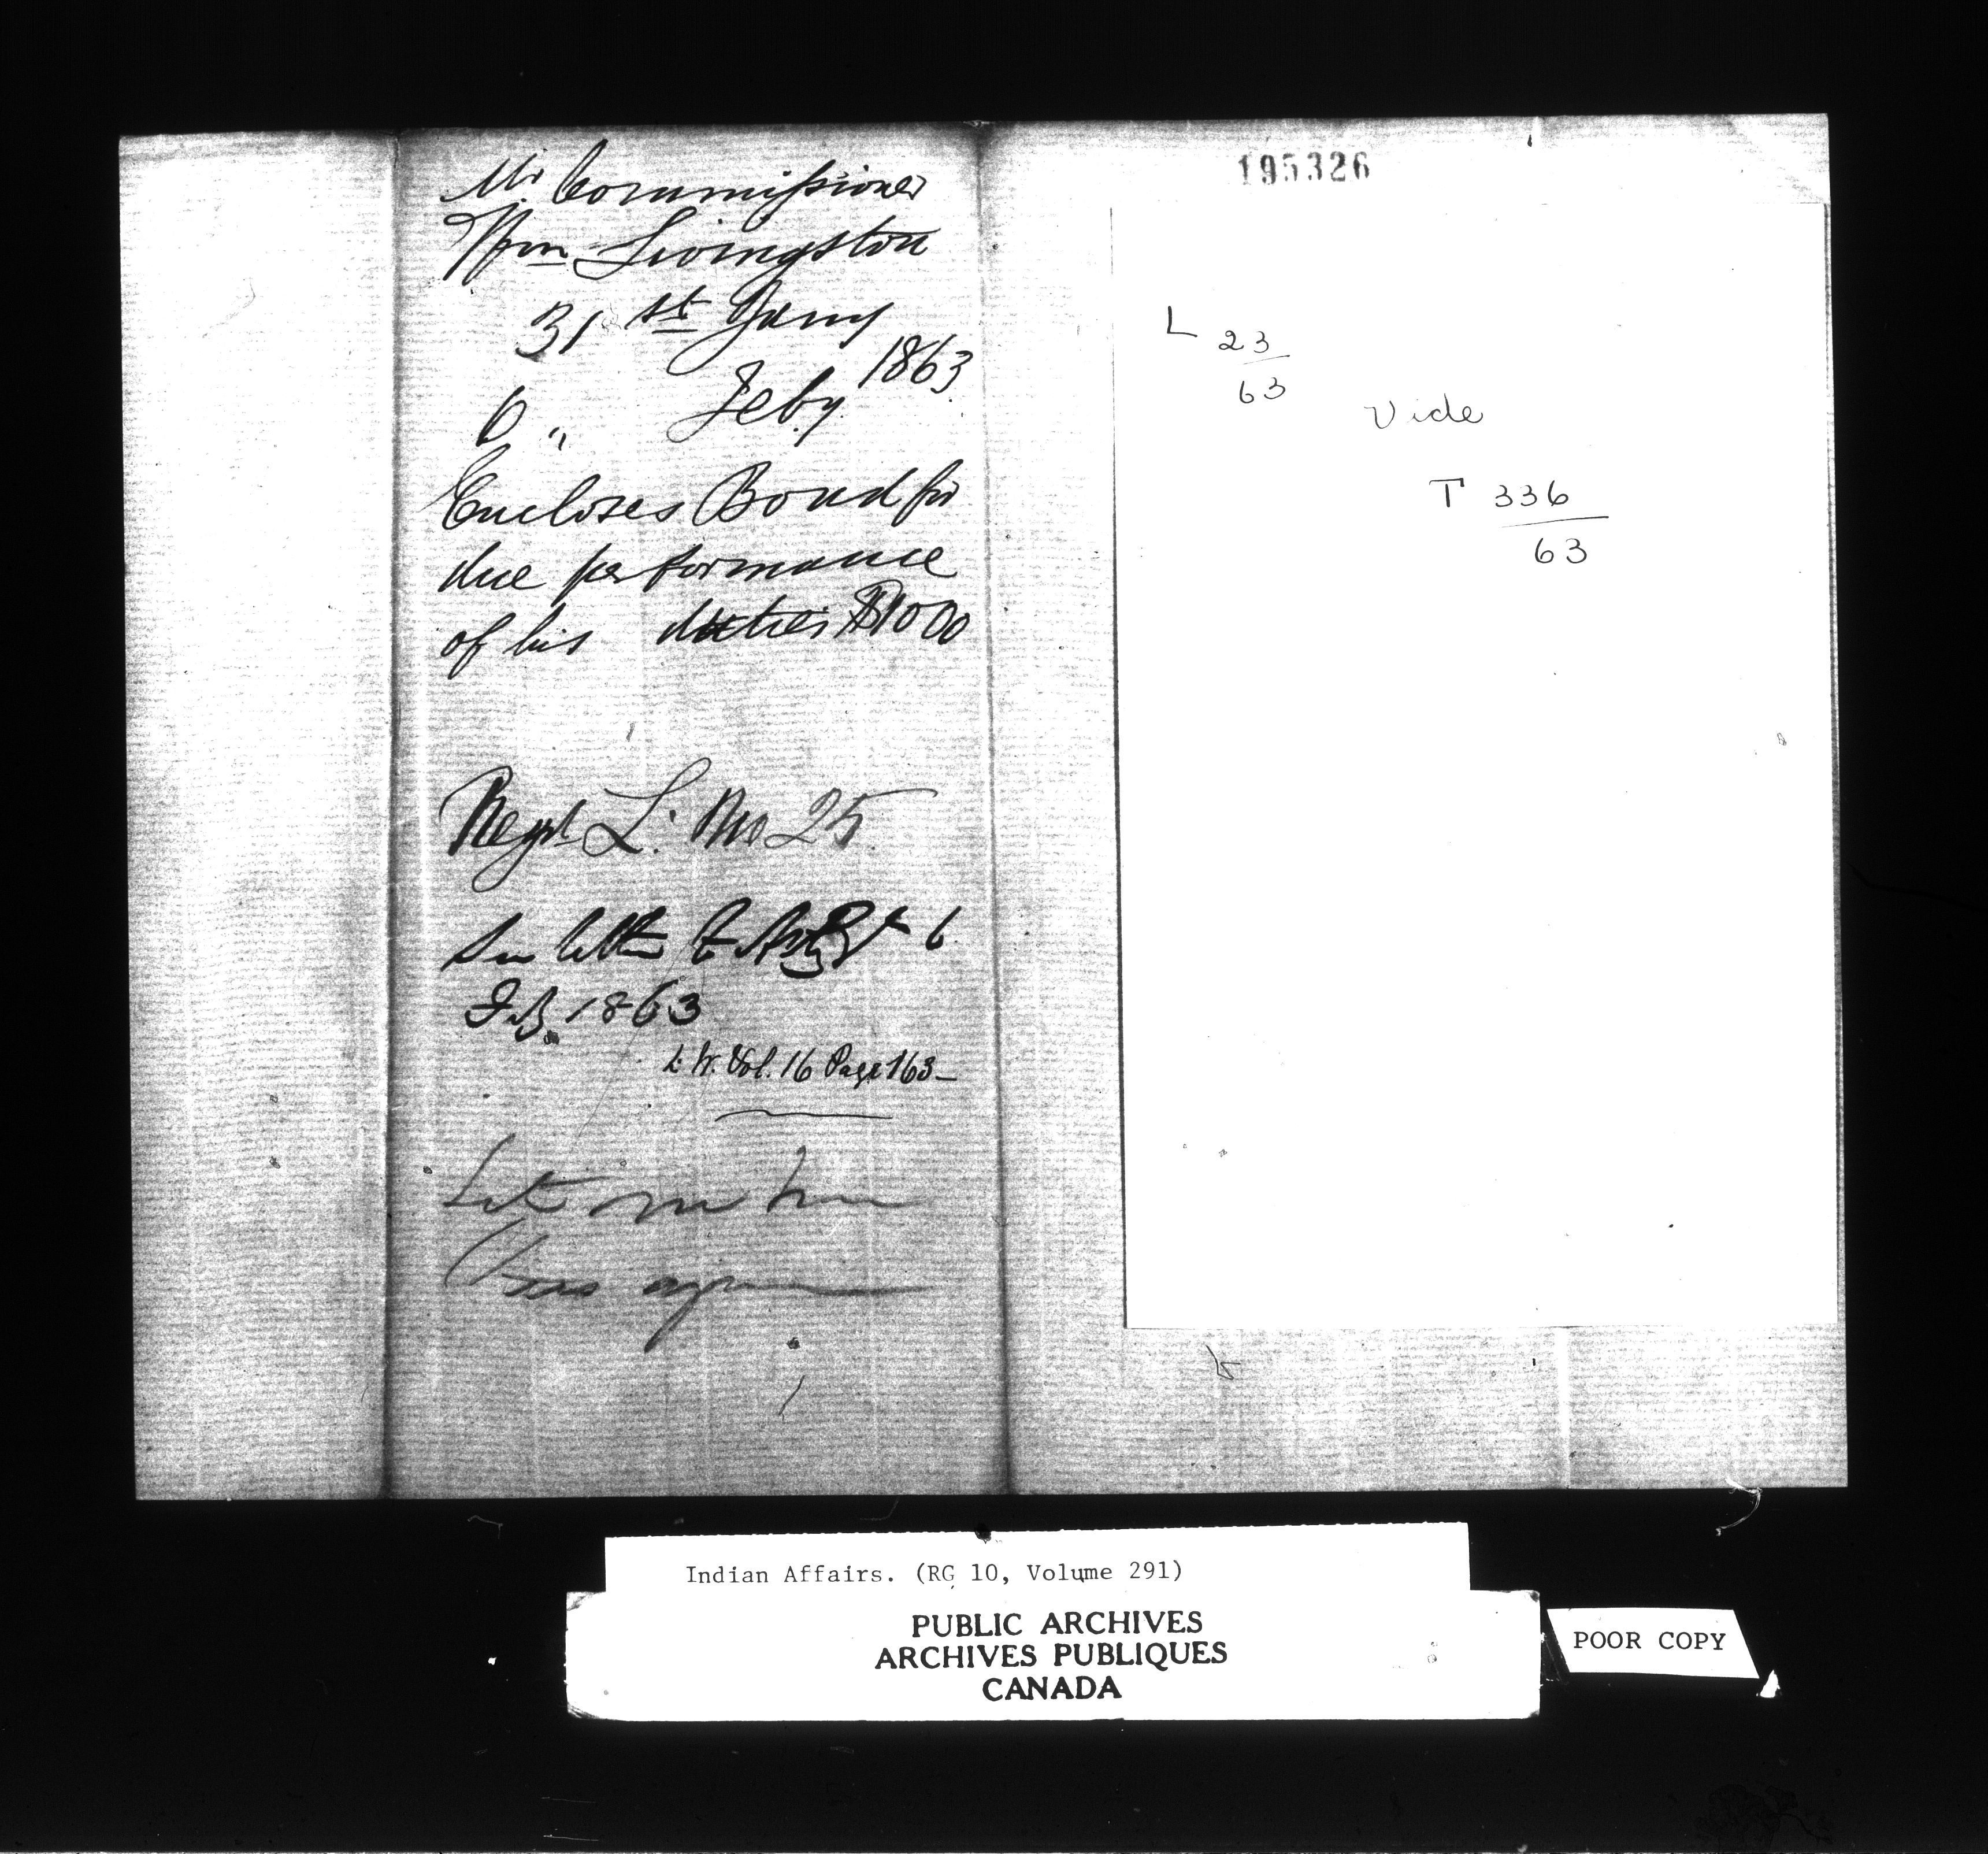 Mr Commissioner
Wm Livingston
31 st Jany
1863
6 " Feby
Encloses Bond for
due performance
of his duties $1000
Regd L. No 25
See letter to
6
Feb. 1863
L. W. Vol. 16 Page 163 –
Let me have
again
195326
L 23
63
Vide
T 336
63
Indian Affairs. (RG 10, Volume 291)
PUBLIC ARCHIVES
ARCHIVES PUBLIQUES
CANADA
POOR COPY